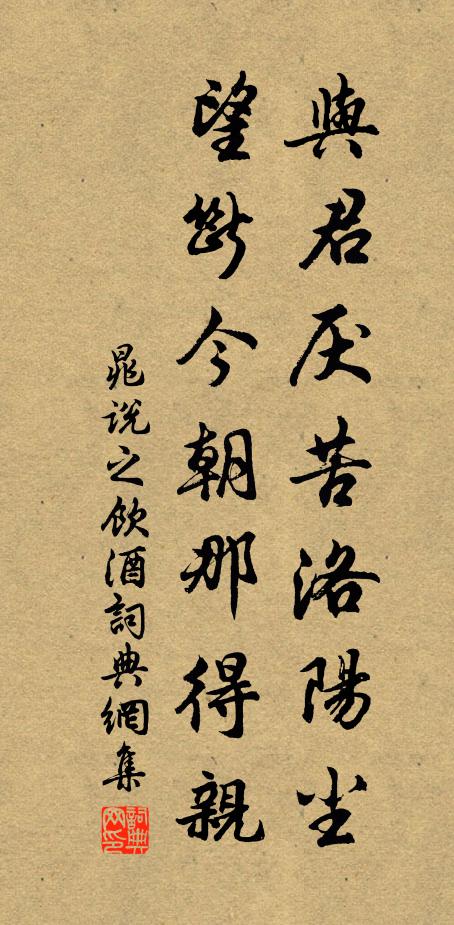 與君厭苦洛陽尘
望斷今朝那得親
晁說之飲酒詞典網集
詞典网印